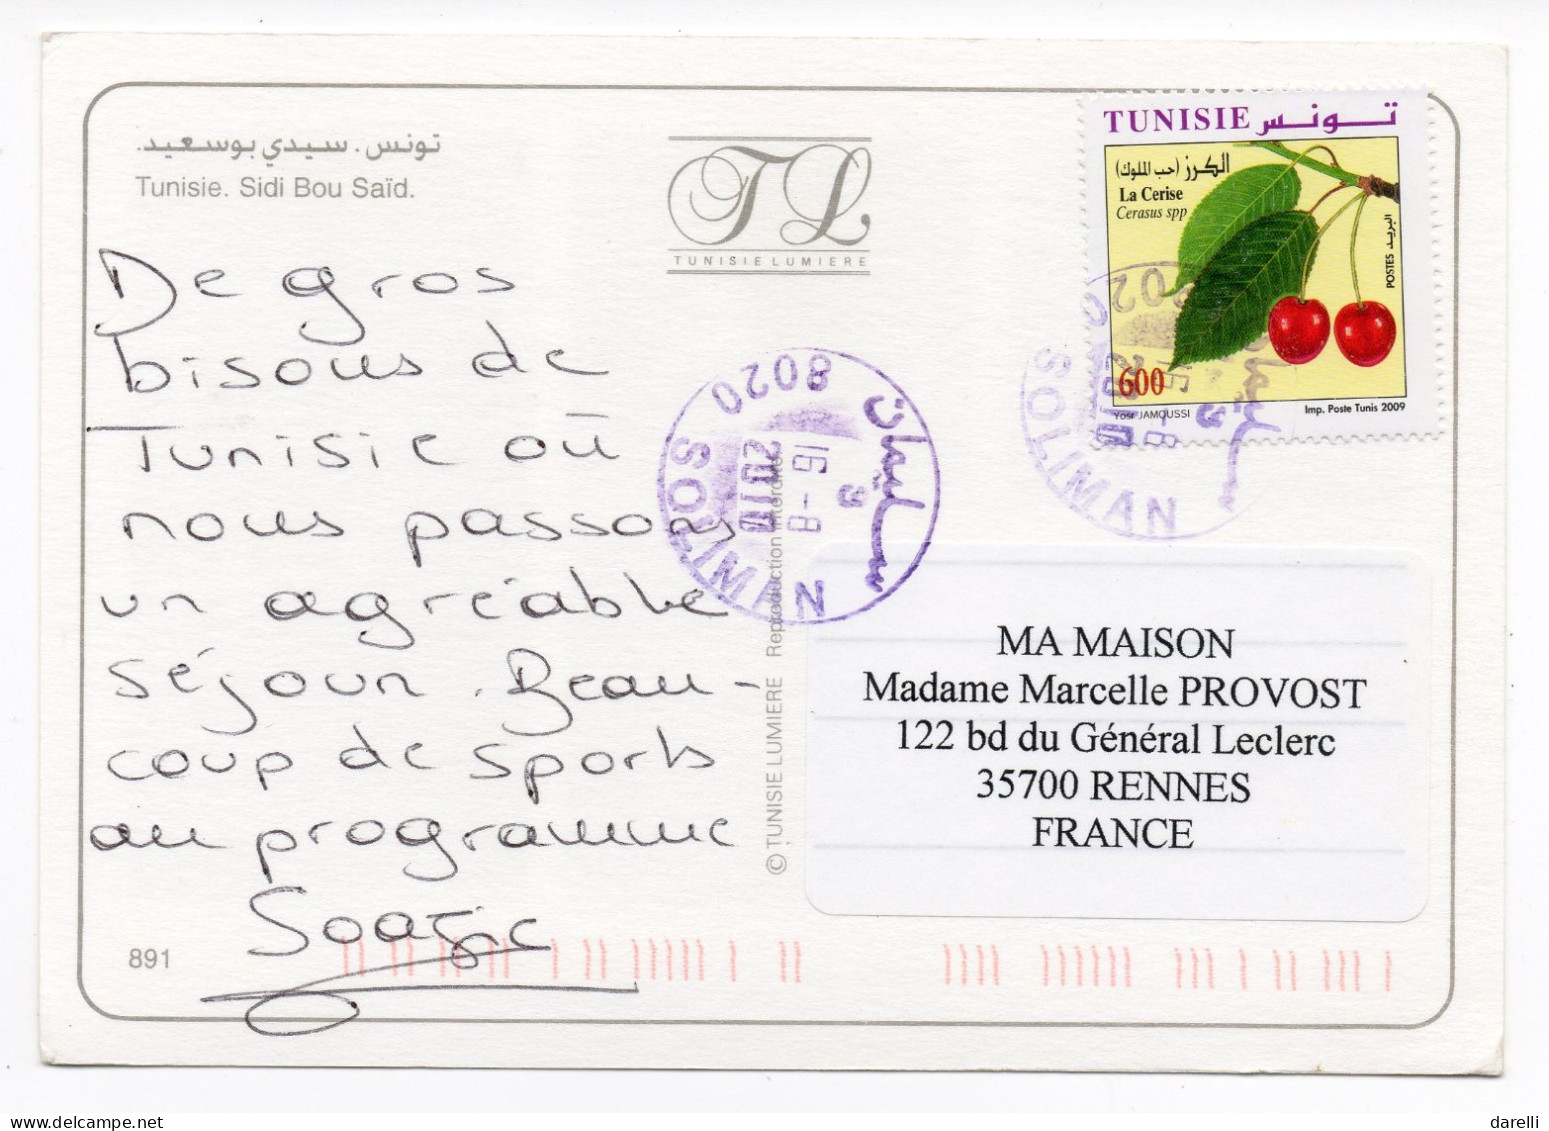 تونس. سيدي بوسعيد.
Tunisie. Sidi Bou Saïd.
TL
TUNISIE LUMIERE
De gros
bisous de
Tunisie où
nous passons
un agréable
séjour. Beau-
coup de sports
au programme
Soazic
891
© TUNISIE LUMIERE Reproduction interdite
8020
سليمان
16 -8
2010
SOLIMAN
TUNISIE تونس
الكرز (حب الملوك)
La Cerise
Cerasus spp
البريد POSTES
600
Yosr JAMOUSSI
Imp. Poste Tunis 2009
8020
سليمان
SOLIMAN
MA MAISON
Madame Marcelle PROVOST
122 bd du Général Leclerc
35700 RENNES
FRANCE
darelli